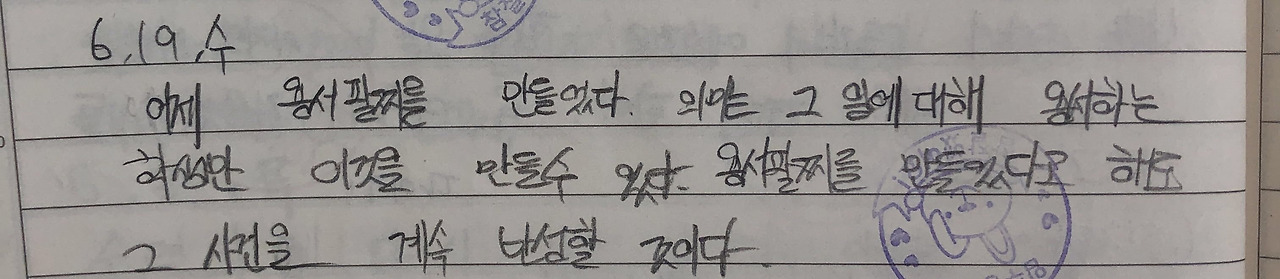 6.19.수
어제 용서팔찌를 만들었다. 의미는 그 일에 대해 용서하는
학생만 이것을 만들수 있다. 용서팔찌를 만들었다고 해도
그 사건을 계속 반성할 것이다.